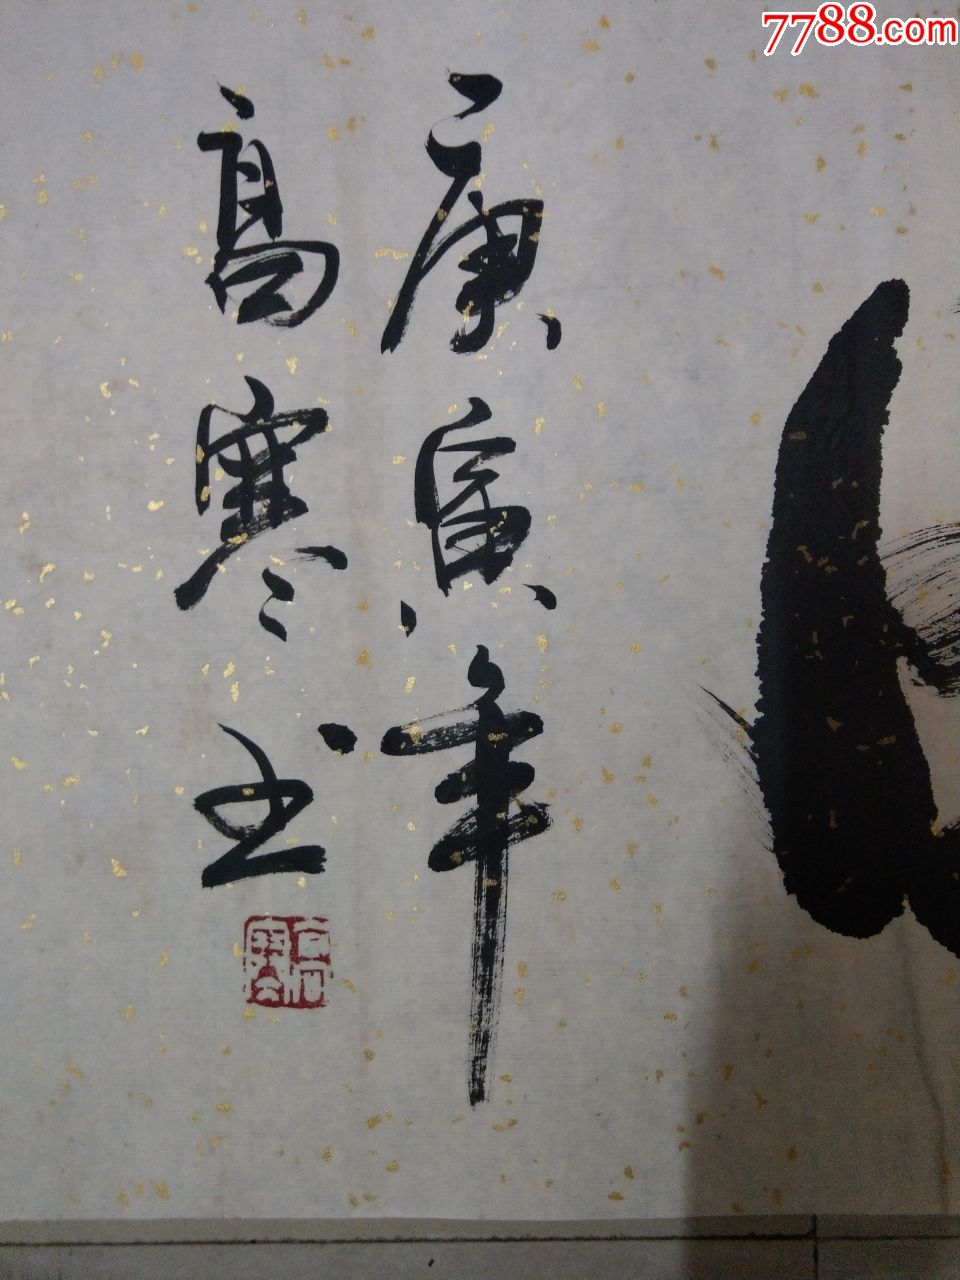 7788.com
庚寅年
高寒书